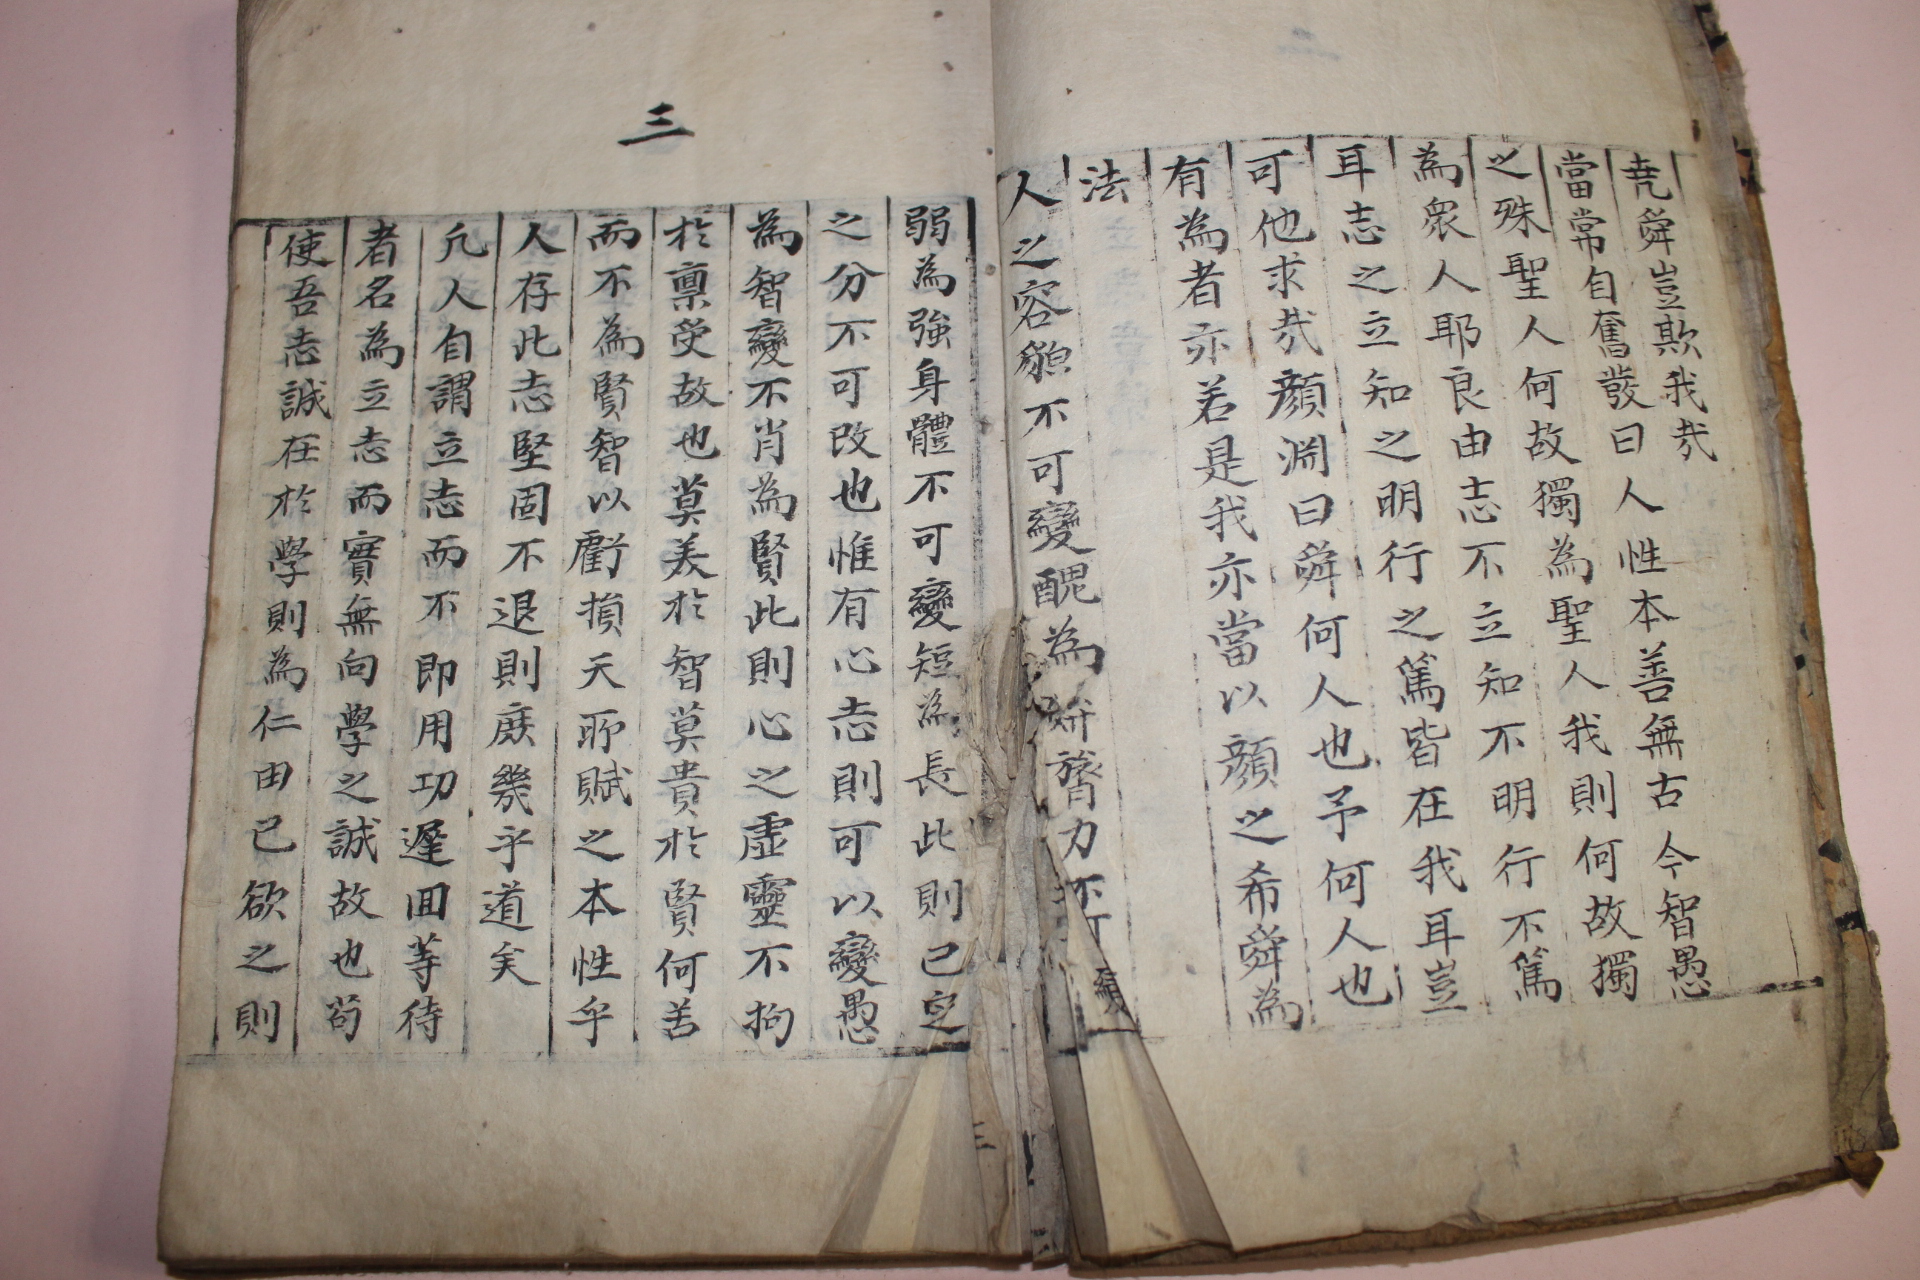 尭舜豈欺我哉
當常自奮發曰人性本善無古今智愚
之殊聖人何故獨為聖人我則何故獨
為衆人耶良由志不立知不明行不篤
耳志之立知之明行之篤皆在我耳豈
可他求哉顔淵曰舜何人也予何人也
有為者亦若是我亦當以顔之希舜為
法
人之容貌不可變醜為姸膂力不可變
三
弱為強身體不可變短為長此則已定
之分不可改也惟有心志則可以變愚
為智變不肖為賢此則心之虛靈不拘
於稟受故也莫美於智莫貴於賢何苦
而不為賢智以虧損天所賦之本性乎
人存此志堅固不退則庶幾乎道矣
凢人自謂立志而不即用功遲囬等待
者名為立志而實無向學之誠故也苟
使吾志誠在於學則為仁由己欲之則